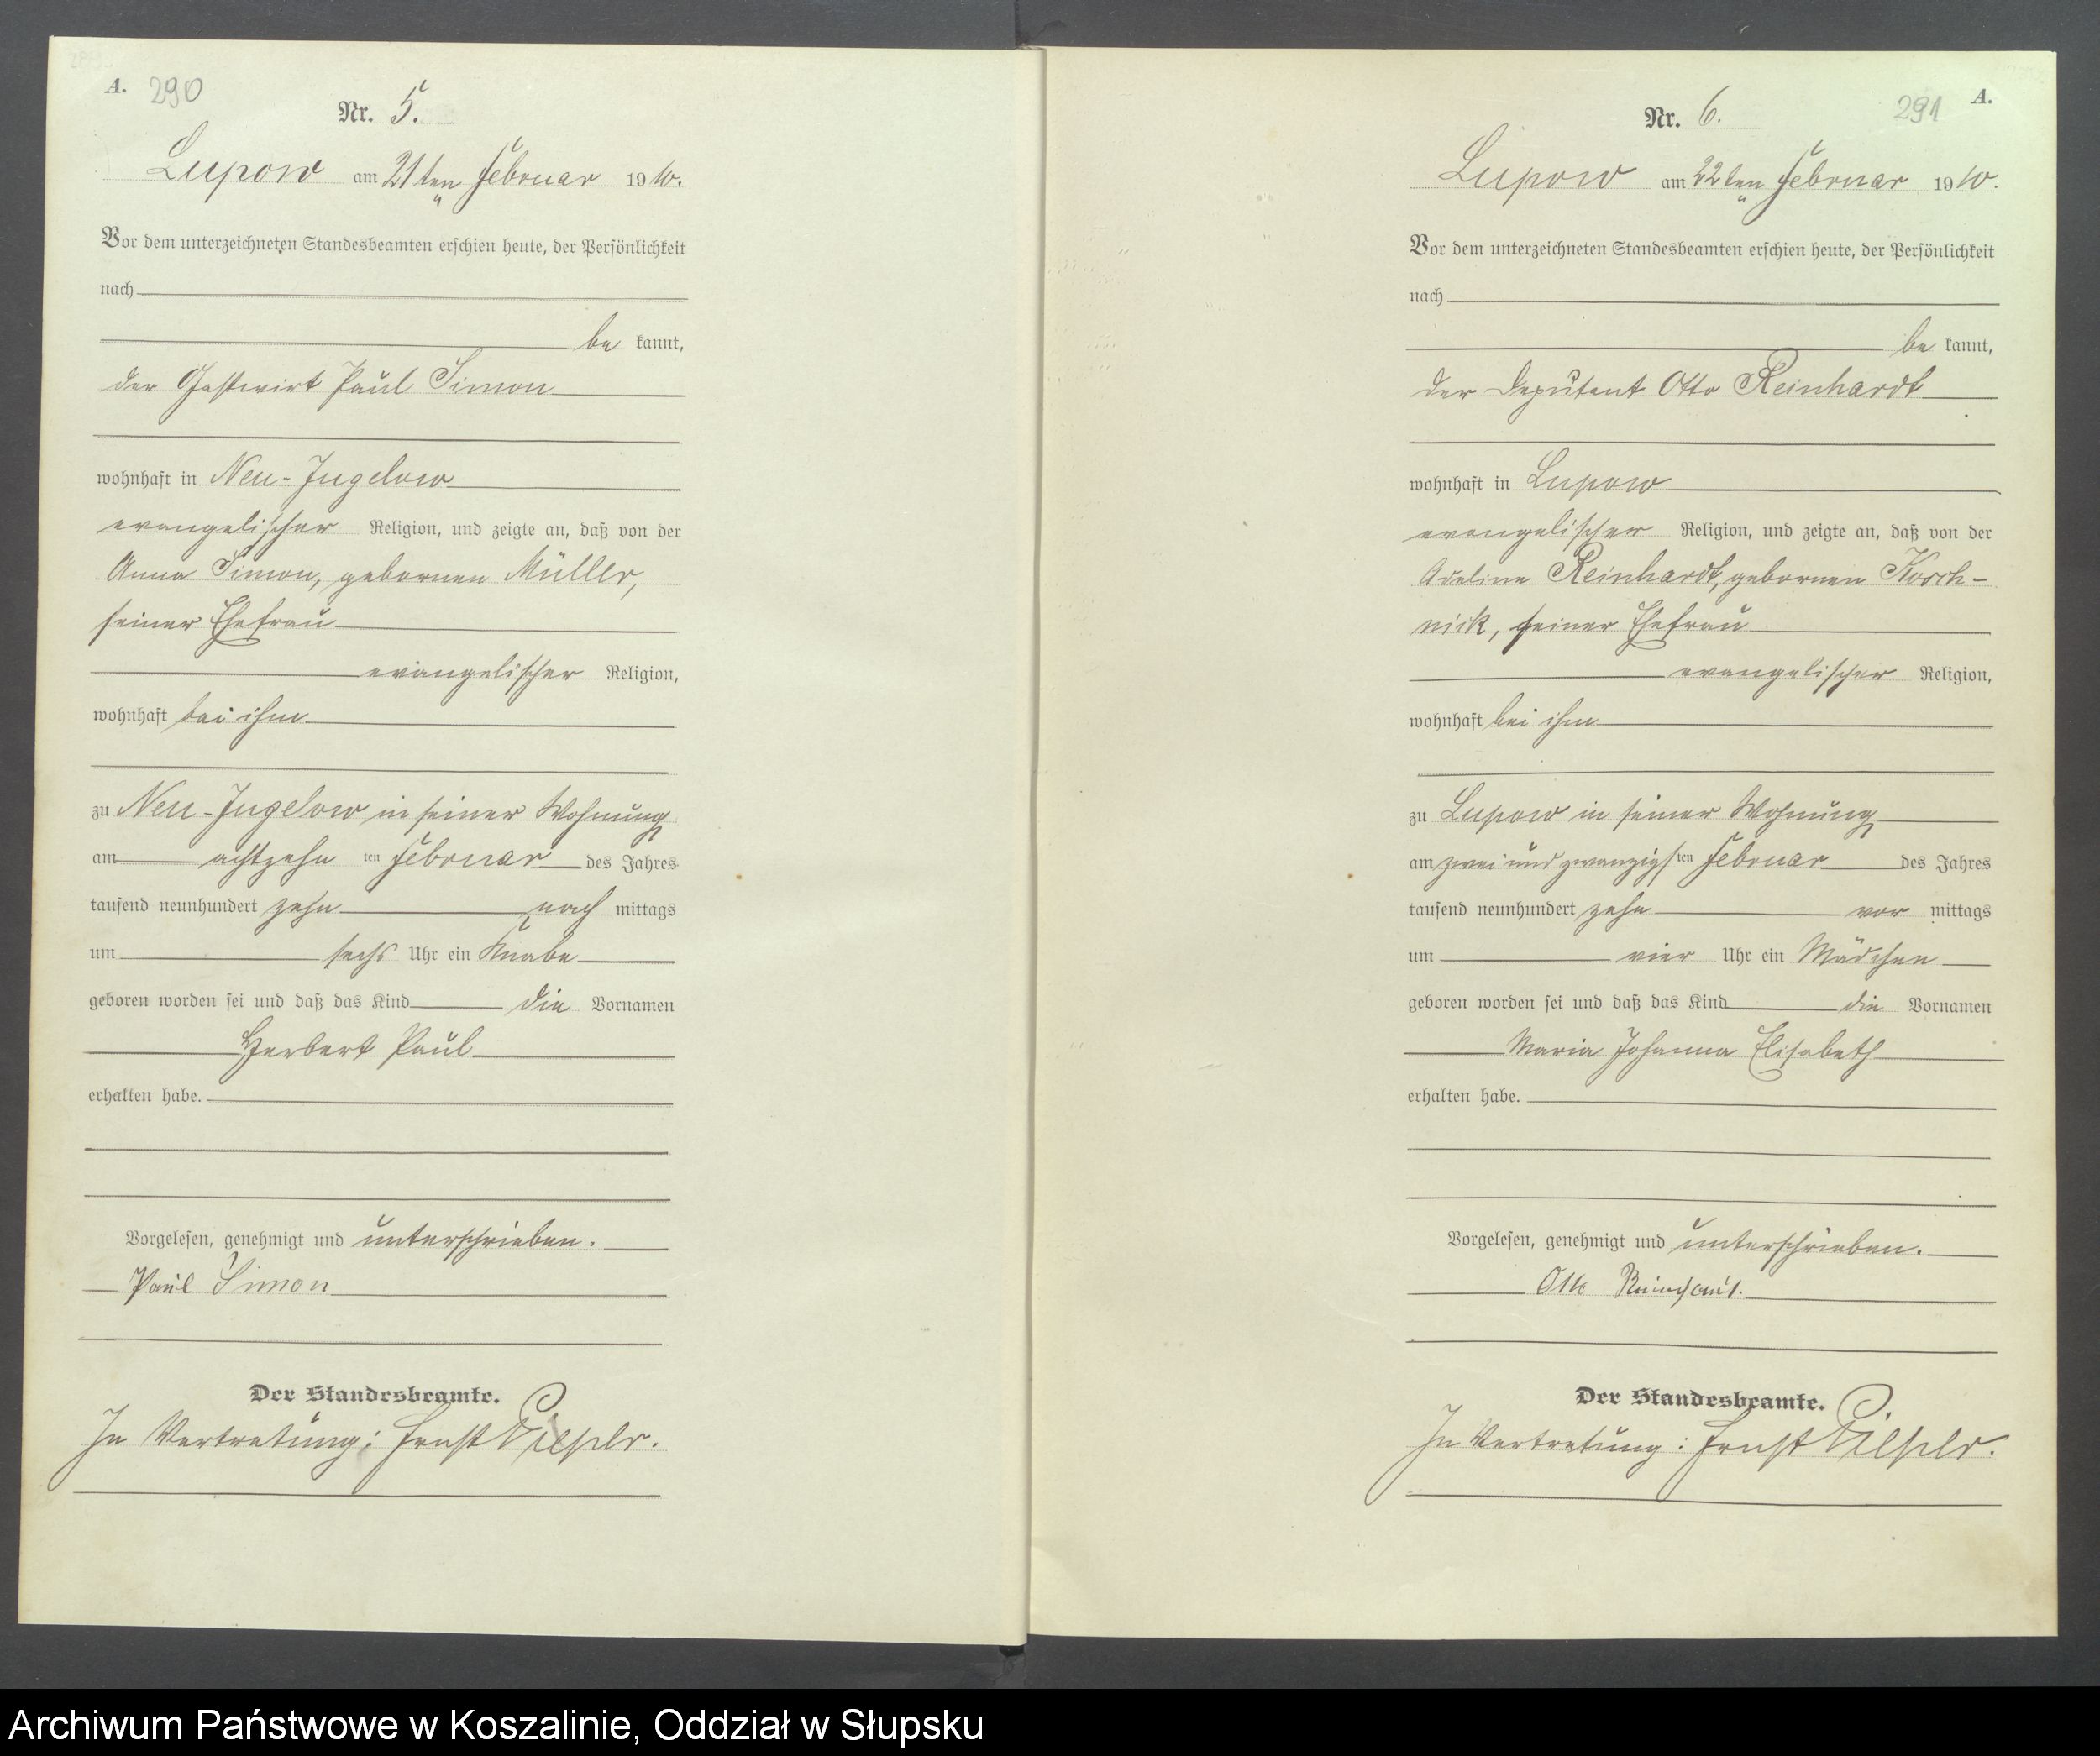 A. 290
Nr. 5.
Lupow am 21ten Februar 1910.
Vor dem unterzeichneten Standesbeamten erschien heute, der Persönlichkeit
nach
be kannt,
der Gastwirt Paul Simon
wohnhaft in Neu-Jugelow
evangelischer Religion, und zeigte an, daß von der
Anna Simon, gebornen Müller,
seiner Ehefrau
evangelischer Religion,
wohnhaft bei ihm
zu Neu-Jugelow in seiner Wohnung
am achtzehn ten Februar des Jahres
tausend neunhundert zehn nach mittags
um sechs Uhr ein Knabe
geboren worden sei und daß das Kind die Vornamen
Herbert Paul
erhalten habe.
Vorgelesen, genehmigt und unterschrieben.
Paul Simon
Der Standesbeamte.
In Vertretung: Ernst
291 A.
Nr. 6.
Lupow am 22ten Februar 1910.
Vor dem unterzeichneten Standesbeamten erschien heute, der Persönlichkeit
nach
be kannt,
der Deputant Otto Reinhardt
wohnhaft in Lupow
evangelischer Religion, und zeigte an, daß von der
Adeline Reinhardt, gebornen Kosch-
nick, seiner Ehefrau
evangelischer Religion,
wohnhaft bei ihm
zu Lupow in seiner Wohnung
am zwei und zwanzigsten Februar des Jahres
tausend neunhundert zehn vor mittags
um vier Uhr ein Mädchen
geboren worden sei und daß das Kind die Vornamen
Maria Johanna Elisabeth
erhalten habe.
Vorgelesen, genehmigt und unterschrieben.
Otto Reinhardt.
Der Standesbeamte.
In Vertretung: Ernst
Archiwum Państwowe w Koszalinie, Oddział w Słupsku